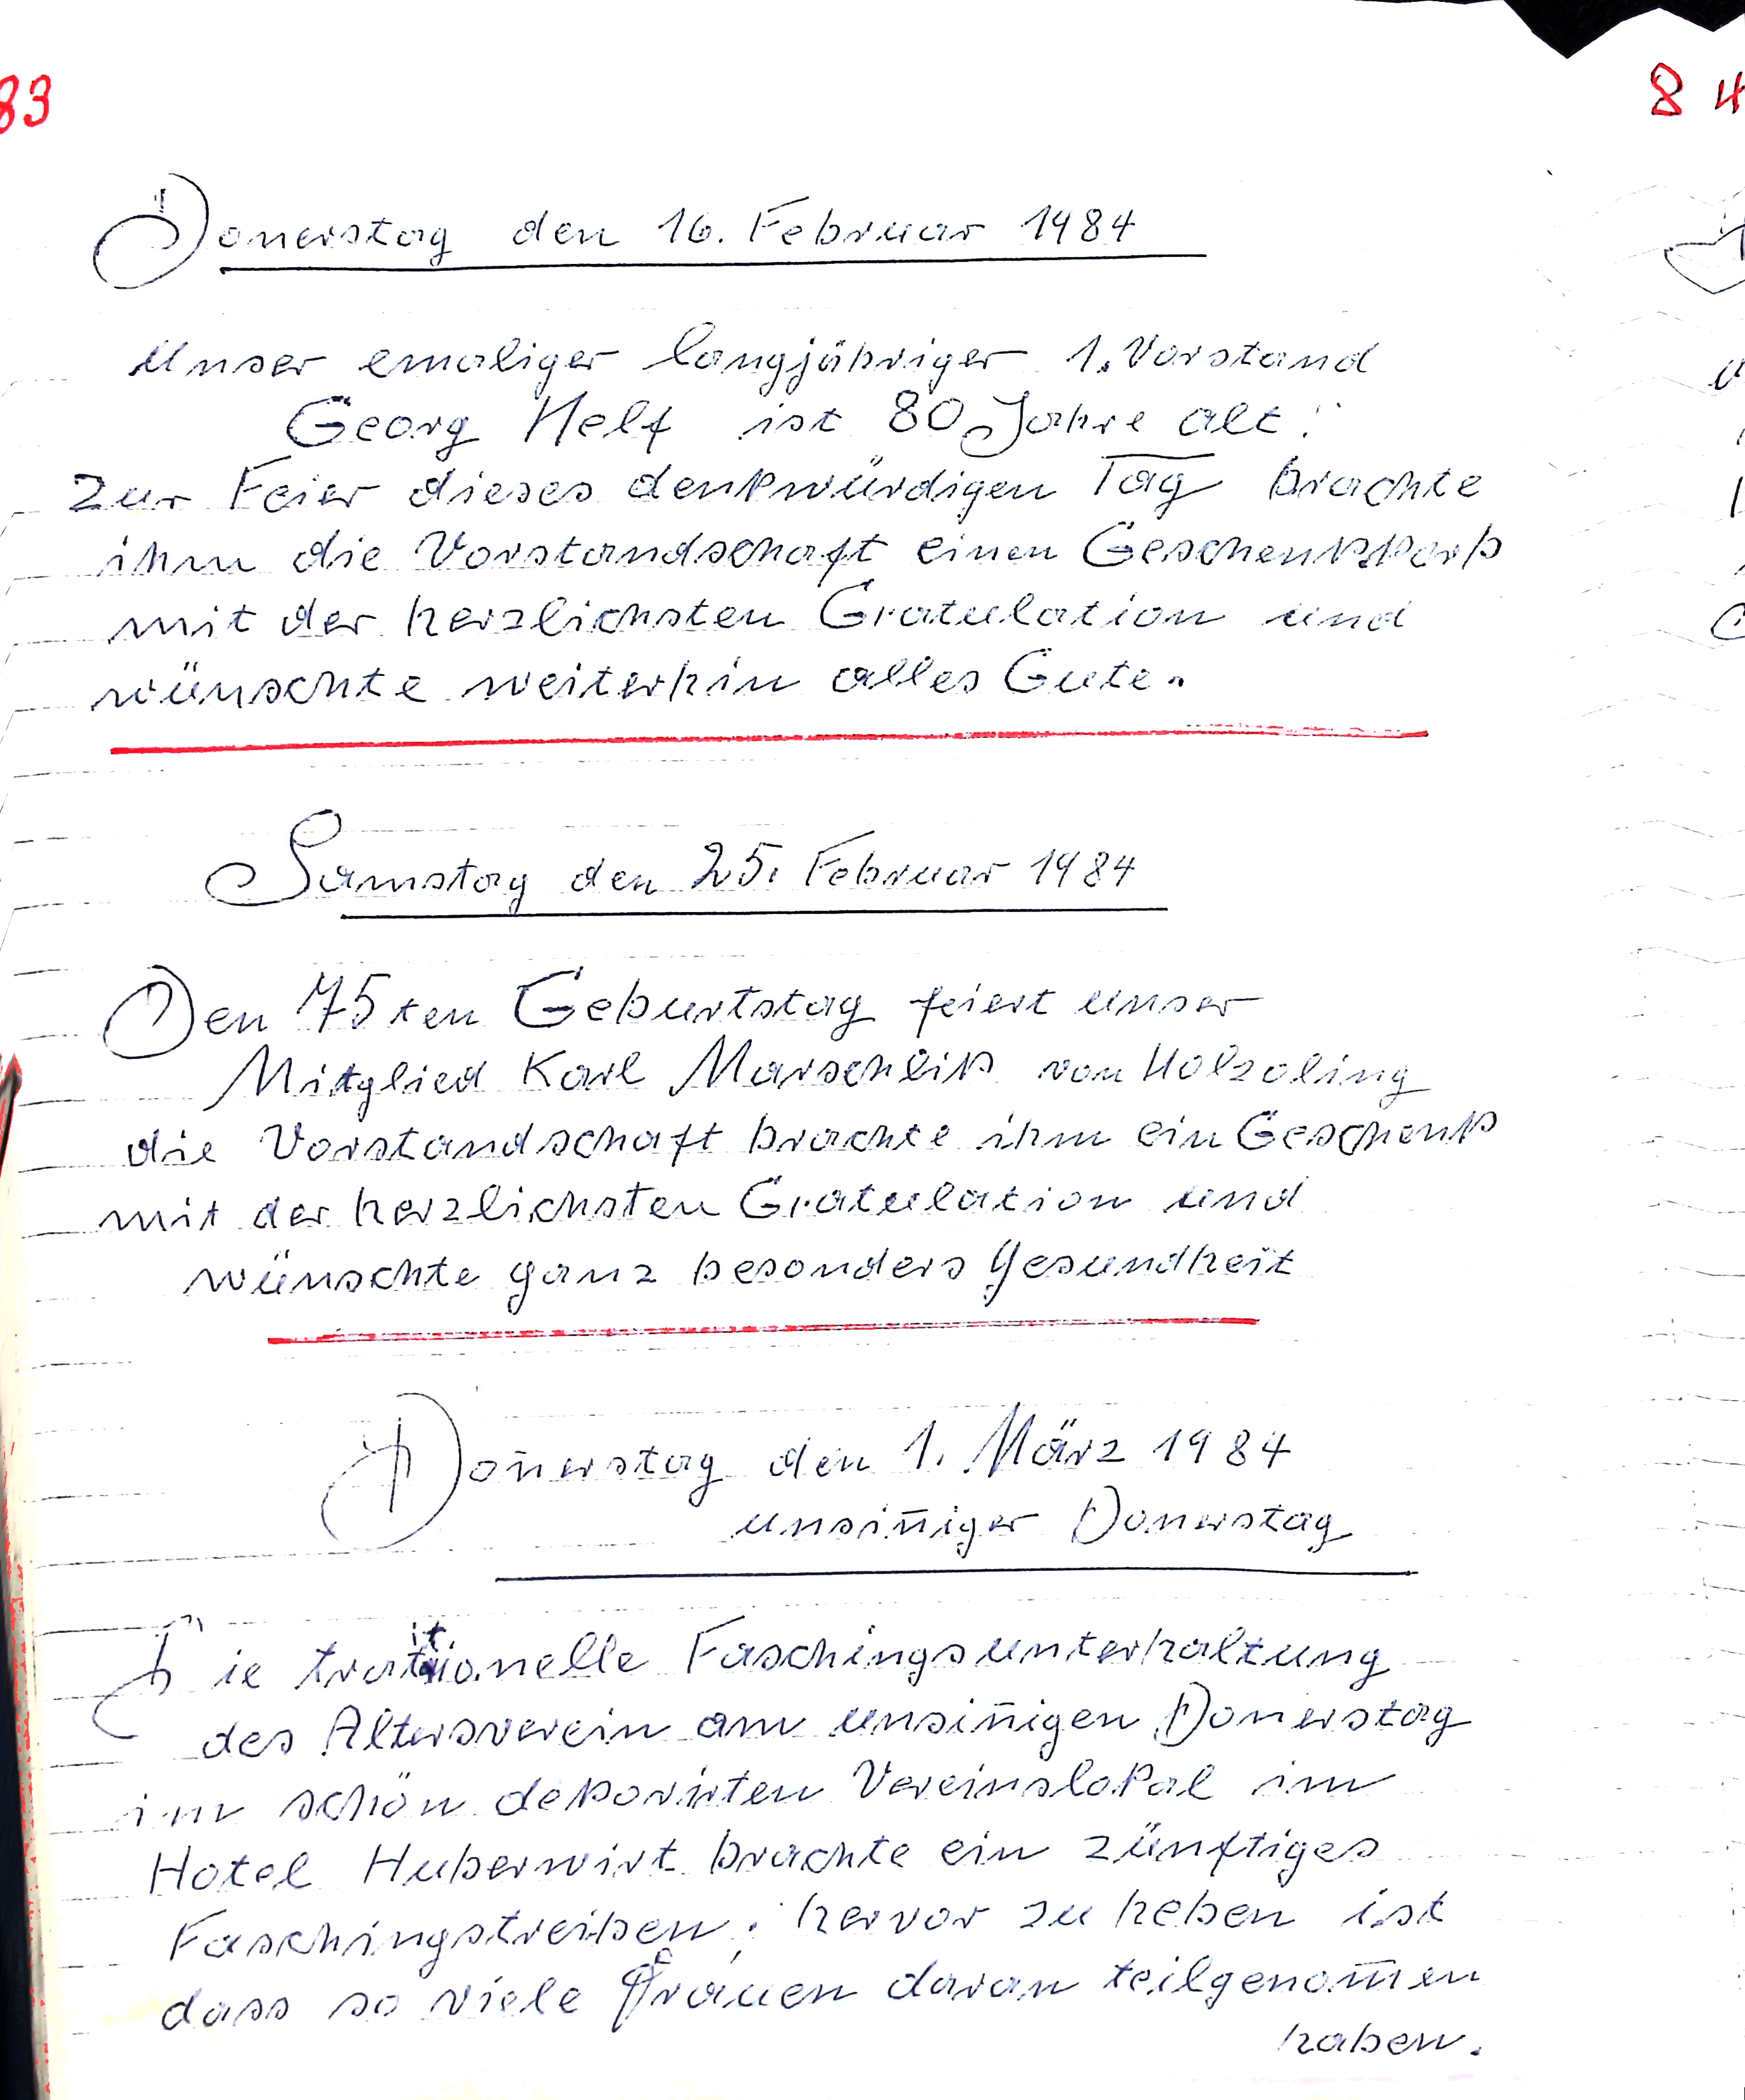 83
84
Donerstag den 16. Februar 1984
Unser emaliger langjähriger 1. Vorstand
Georg Helf ist 80 Jahre alt!
Zur Feier dieses denkwürdigen Tag brachte
ihm die Vorstandschaft einen Geschenkkorb
mit der herzlichsten Gratulation und
wünschte weiterhin alles Gute.
Samstag den 25. Februar 1984
Den 75ten Geburtstag feiert unser
Mitglied Karl von Holzoling
die Vorstandschaft brachte ihm ein Geschenk
mit der herzlichsten Gratulation und
wünschte ganz besonders Gesundheit
Doñerstag den 1. März 1984
unsiñiger Donerstag
Die Faschingsunterhaltung
des Altersverein am unsiñigen Donerstag
im schön dekorirten Vereinslokal im
Hotel Huberwirt brachte ein zünftiges
Faschingstreiben; hervor zu heben ist
dass so viele Frauen daran teilgenom̄en
haben.